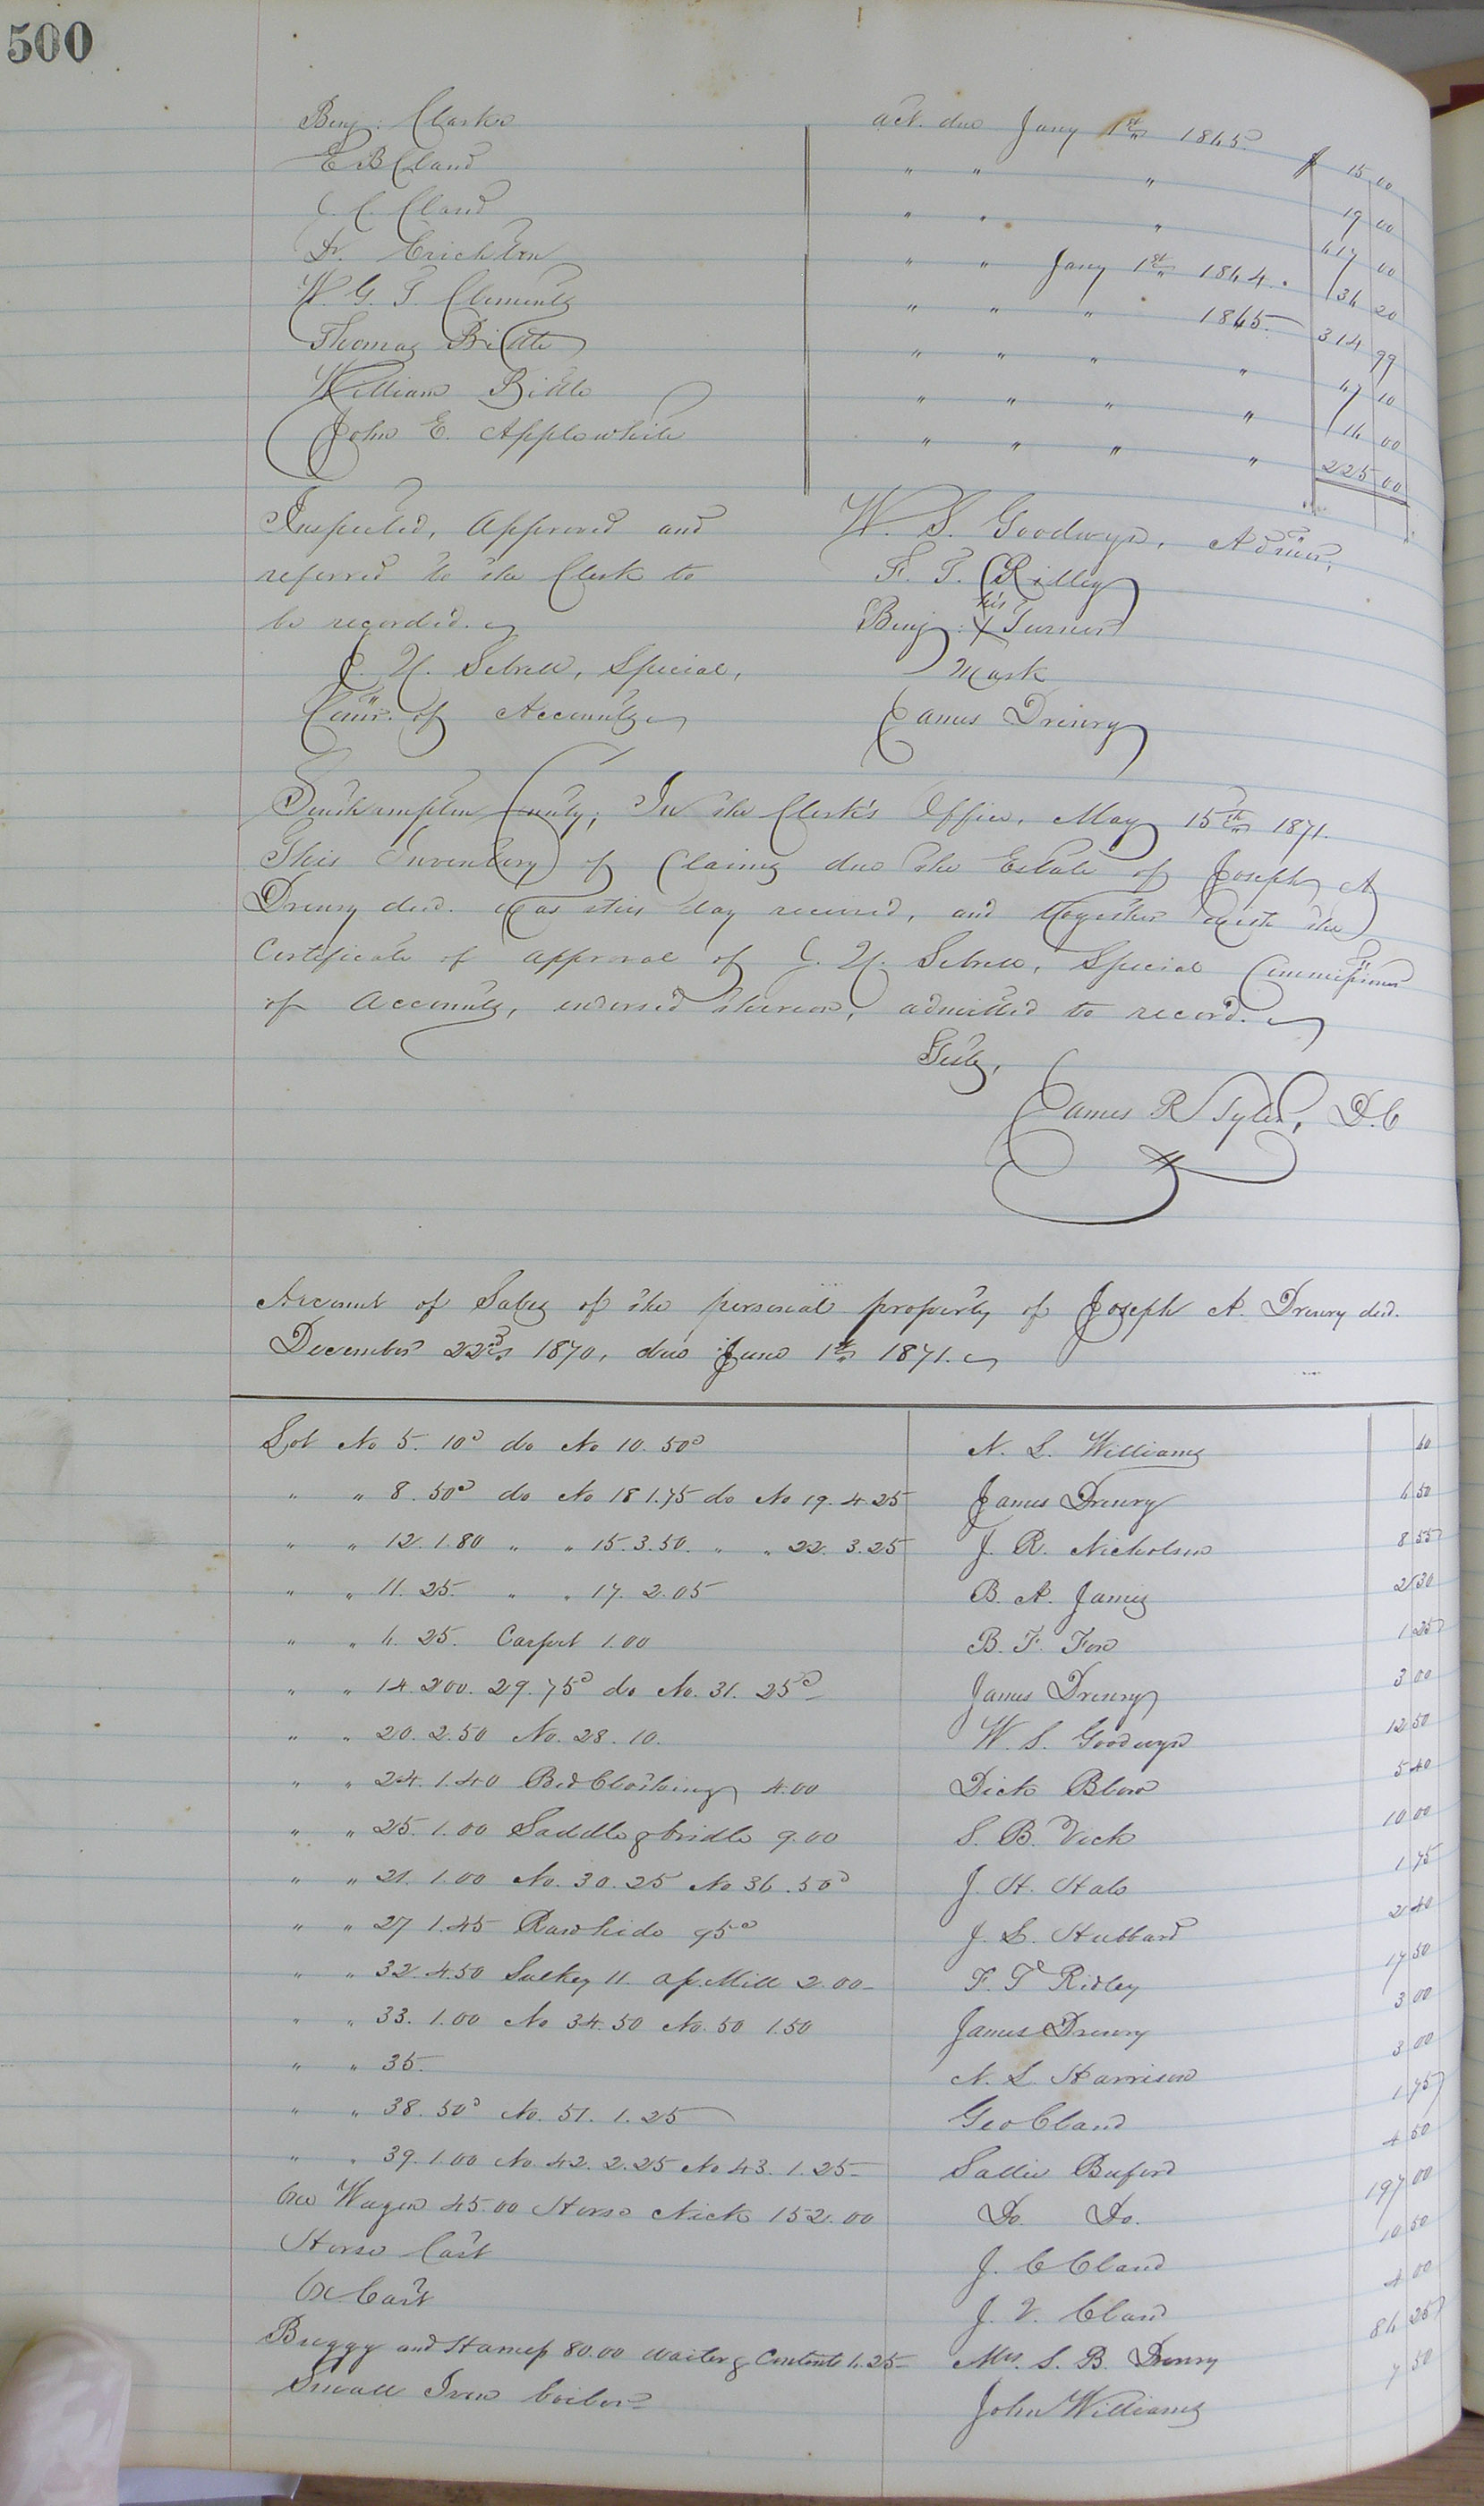 500
Benj: Clarke act. due Jany 1st 1865. $ 15 00
E B Claud " " " 19 00
J. C. Claud " " " 617 00
Dr. Crichton " " Jany 1st 1864. 136 20
W. G. T. Clements " " " 1865. 314 99
Thomas Bittle " " " " 67 10
William Bittle " " " " 116 00
John E. Applewhite " " " " 225 00
Inspected, Approved and W. S. Goodwyn, Admr.
referred to the Clerk to F. T. Ridley
be recorded. his
Benj: X Turner
J. U. Sebrell, Special, Mark
Comr. of Accounts James Drewry
Southampton County; In the Clerk's Office, May 15th 1871.
This Inventory of Claims due the Estate of Joseph A
Drewry decd. was this day received, and together with the
Certificate of approval of J. U. Sebrell, Special Commissioner
of Accounts, endorsed thereon, admitted to record.
Teste,
James R Tyler, D.C
Account of Sales of the personal property of Joseph A. Drewry decd.
December 22nd 1870, due June 1st 1871.
Lot No 5. 10c do No 10. 50c N. L. Williams 60
" " 8. 50c do No 18 1.75 do No 19. 4.25 James Drewry 6 50
" " 12. 1.80 " " 15. 3.50. " " 22. 3.25 J. R. Nicholson 8 55
" " 11. 25. " " 17. 2.05 B. A. James 2 30
" " 6. 25. Carpet 1.00 B. F. Fox 1 25
" " 14. 200. 29. 75c do No. 31. 25c James Drewry 3 00
" " 20. 2.50 No. 28. 10. W. S. Goodwyn 12 50
" " 24. 1.40 Bed Clothing 4.00 Dick Blow 5 40
" " 25. 1.00 Saddle & bridle 9.00 S. B. Vick 10 00
" " 21. 1.00 No. 30. 25 No 36. 50c J. H. Hale 1 75
" " 27 1.45 Rawhide 95c J. L. Hubbard 2 40
" " 32. 4.50 Sulkey 11. ap. Mill 2.00 F. T. Ridley 17 50
" " 33. 1.00 No 34. 50 No. 50 1.50 James Drewry 3 00
" " 35. N. L. Harrison 3 00
" " 38. 50c No. 51. 1.25 Geo Claud 1 75
" " 39. 1.00 No. 42. 2.25 No 43. 1.25 Sallie Buford 4 50
Ox Wagon 45.00 Horse Nick 152.00 Do. Do. 197 00
Horse Cart J. C Claud 10 50
Ox Cart J. V. Claud 4 00
Buggy and Harness 80.00 waiter & Contents 6.25 Mrs. S. B. Drewry 86 25
Small Iron boiler J<br>ohn Williams 7 50